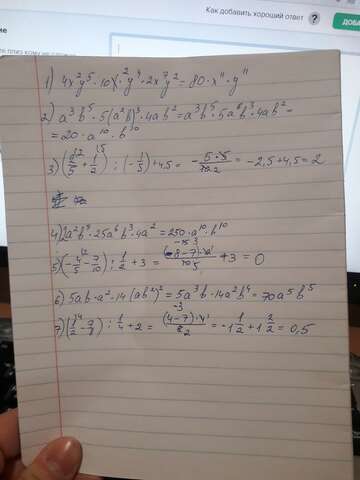 Как добавить хороший ответ
1) 4x²y⁵ · 10x²y⁴ · 2x⁷y² = 80 · x¹¹ · y¹¹
2) a³b⁵ · 5(a²b)³ · 4ab² = a³b⁵ · 5a⁶b³ · 4ab² =
= 20 · a¹⁰ · b¹⁰
+ 4,5 = -2,5 + 4,5 = 2
4) 2a²b⁵ · 25a⁶b³ · 4a² = 250 · a¹⁰ · b¹⁰
5) (-4/5 - 7/10) : 1/2 + 3 = + 3 = 0
6) 5ab · a² · 14(ab²)² = 5a³b · 14a²b⁴ = 70a⁵b⁵
7) : 1/4 + 2 = (4-7)·4 = -1 1/2 + 1 2/2 = 0,5